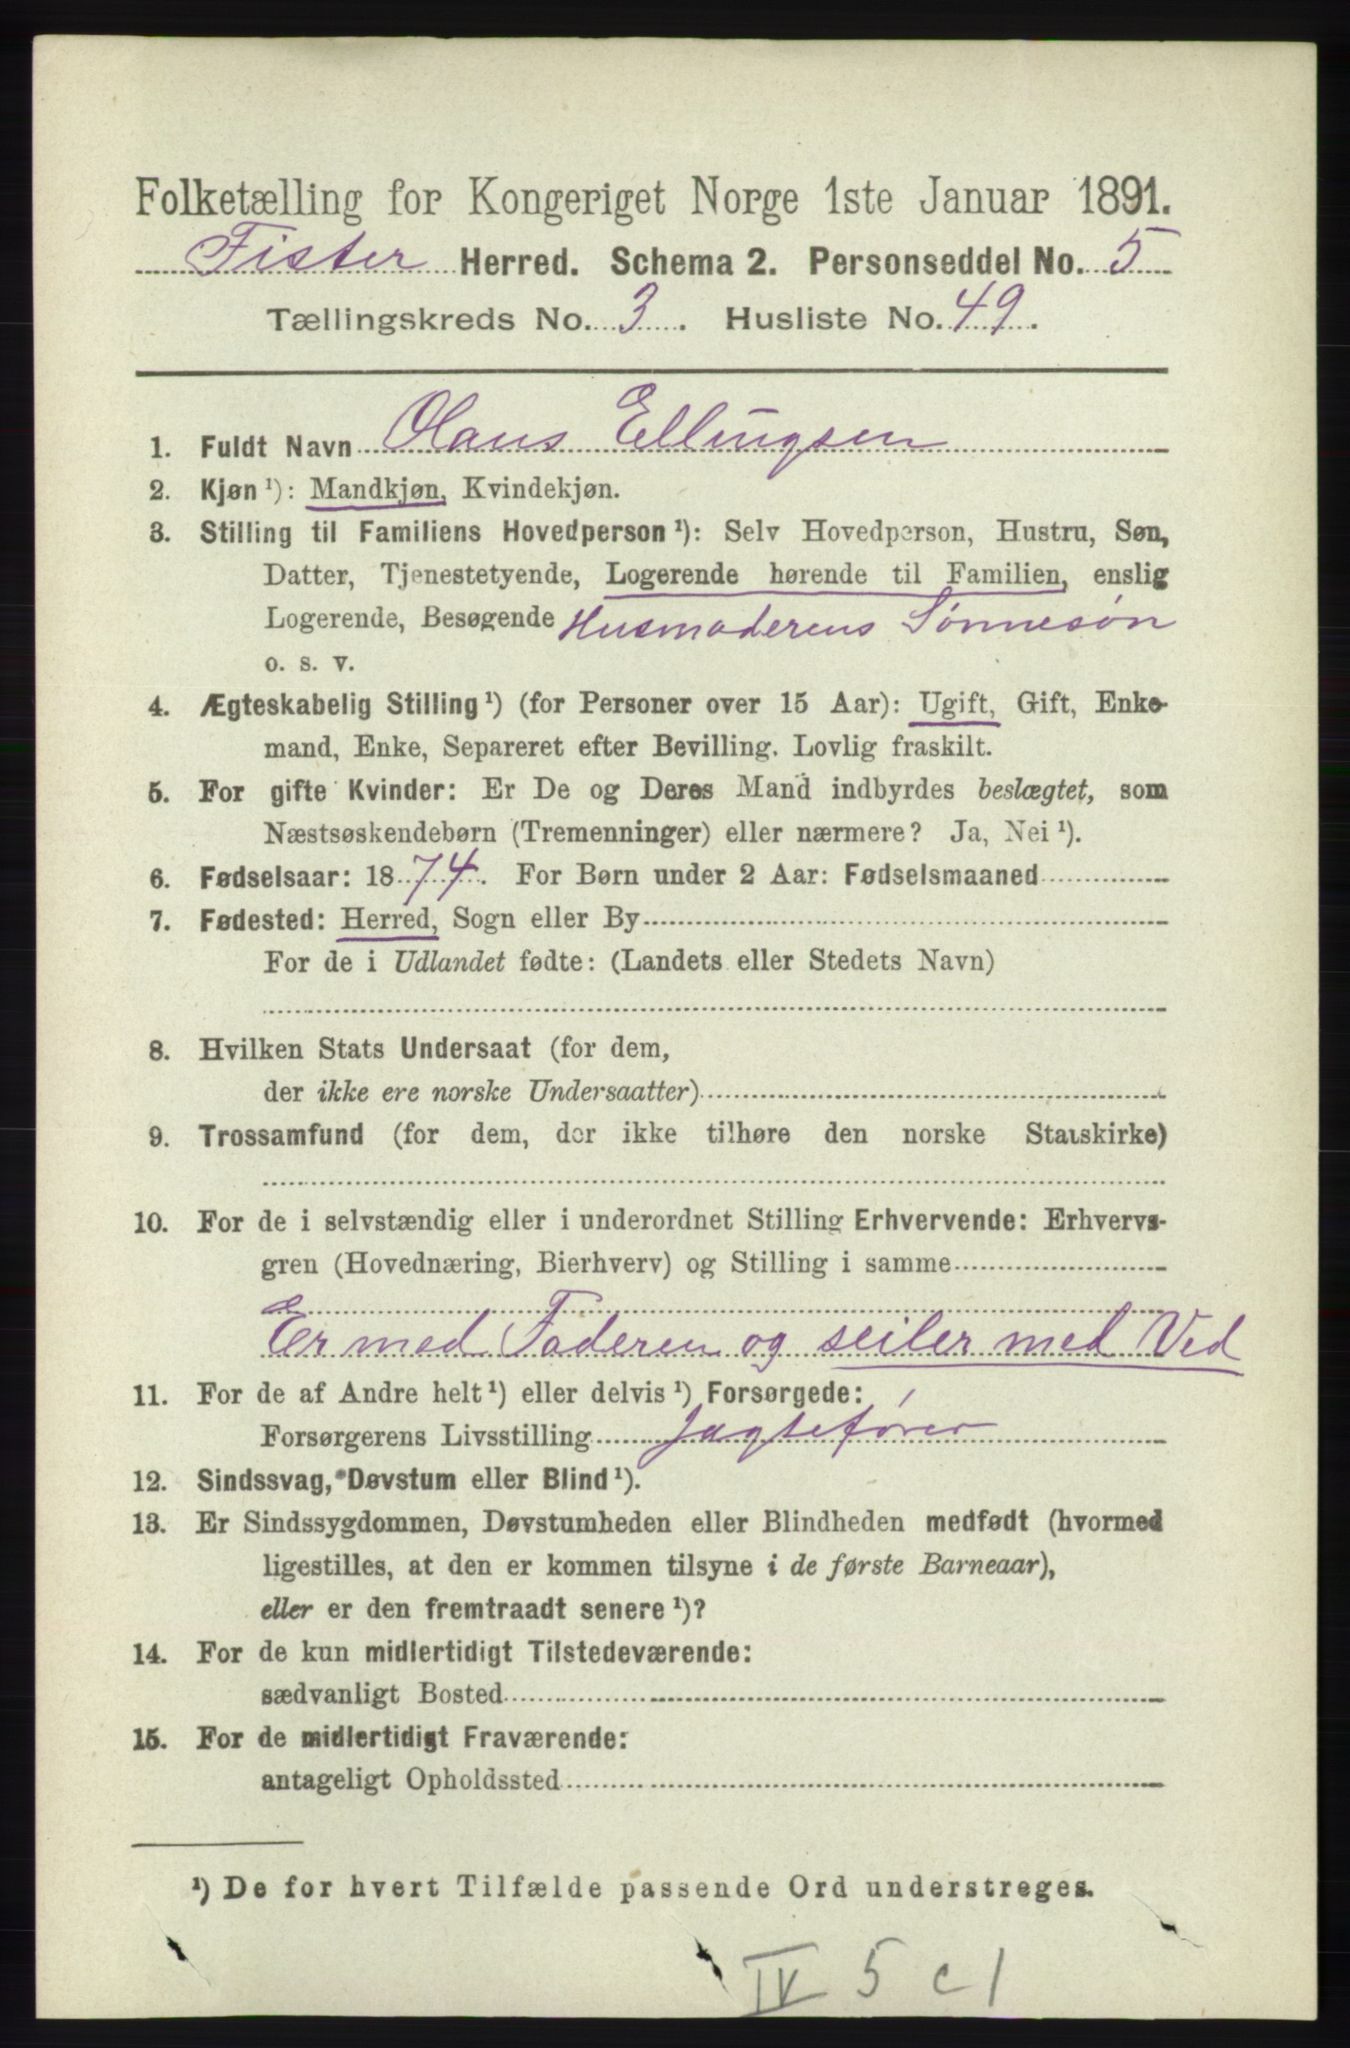 Folketælling for Kongeriget Norge 1ste Januar 1891.
Fister Herred. Schema 2. Personseddel No. 5
Tællingskreds No. 3. Husliste No. 49.
1. Fuldt Navn Olaus Ellingsen
2. Kjøn ¹): Mandkjøn, Kvindekjøn.
3. Stilling til Familiens Hovedperson ¹): Selv Hovedperson, Hustru, Søn,
Datter, Tjenestetyende, Logerende hørende til Familien, enslig
Logerende, Besøgende Husmoderens Sønnesøn
o. s. v.
4. Ægteskabelig Stilling ¹) (for Personer over 15 Aar): Ugift, Gift, Enke-
mand, Enke, Separeret efter Bevilling. Lovlig fraskilt.
5. For gifte Kvinder: Er De og Deres Mand indbyrdes beslægtet, som
Næstsøskendebørn (Tremenninger) eller nærmere? Ja, Nei ¹).
6. Fødselsaar: 1874. For Børn under 2 Aar: Fødselsmaaned
7. Fødested: Herred, Sogn eller By
For de i Udlandet fødte: (Landets eller Stedets Navn)
8. Hvilken Stats Undersaat (for dem,
der ikke ere norske Undersaatter)
9. Trossamfund (for dem, der ikke tilhøre den norske Statskirke)
10. For de i selvstændig eller i underordnet Stilling Erhvervende: Erhvervs-
gren (Hovednæring, Bierhverv) og Stilling i samme
Er med Faderen og seiler med Ved
11. For de af Andre helt ¹) eller delvis ¹) Forsørgede:
Forsørgerens Livsstilling Jagtefører
12. Sindssvag, Døvstum eller Blind ¹).
13. Er Sindssygdommen, Døvstumheden eller Blindheden medfødt (hvormed
ligestilles, at den er kommen tilsyne i de første Barneaar),
eller er den fremtraadt senere ¹)?
14. For de kun midlertidigt Tilstedeværende:
sædvanligt Bosted
15. For de midlertidigt Fraværende:
antageligt Opholdssted
¹) De for hvert Tilfælde passende Ord understreges.
IV 5 c 1